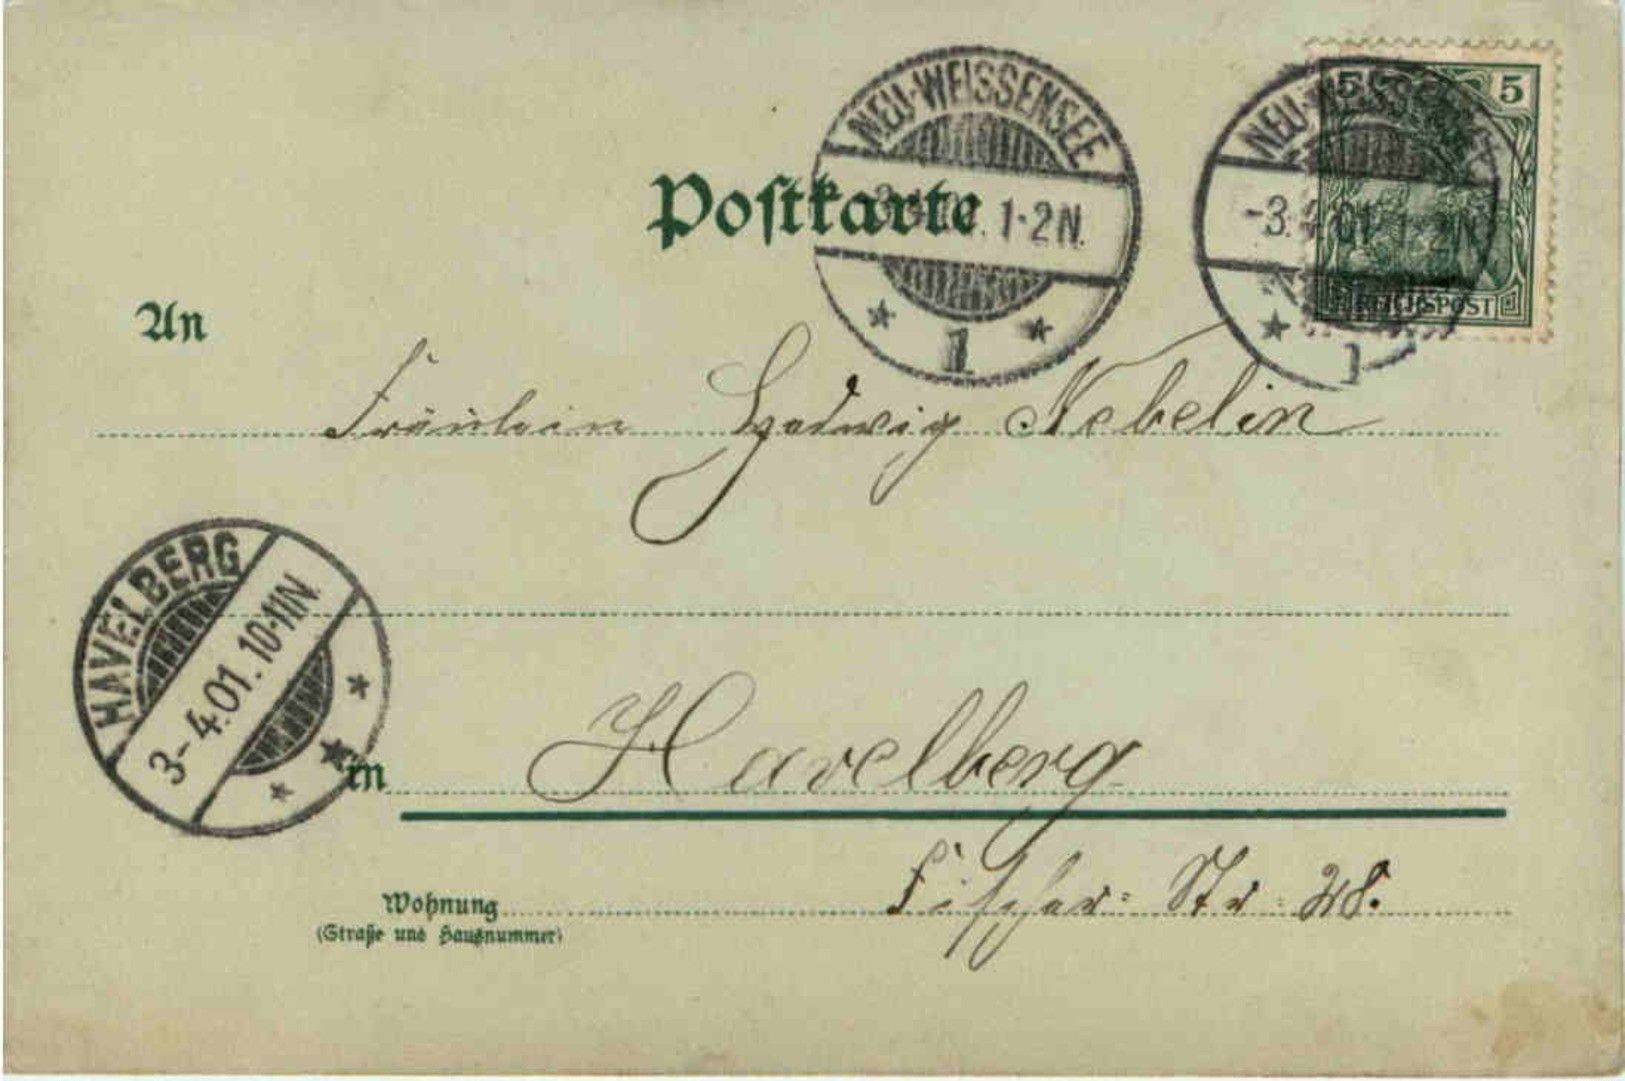 NEU-WEISSENSEE
-3.4.01. 1-2N.
1
NEU-WEISSENSEE
-3.4.01. 1-2N.
1
5 5
REICHSPOST
Postkarte
An
Fräulein Hedwig Nebelin
HAVELBERG
3-4.01.10-11N.
in Havelberg
Wohnung Fischer: Str: 28.
(Straße und Hausnummer)